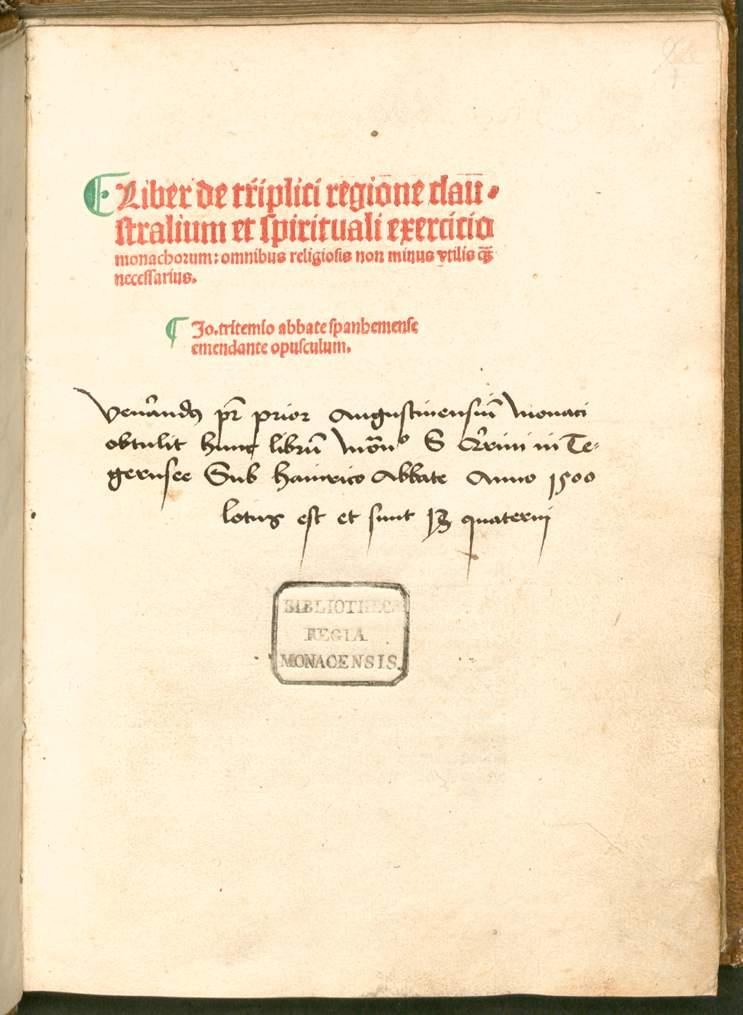 ¶ Liber de triplici regione clau-
stralium et spirituali exercitio
monachorum: omnibus religiosis non minus vtilis q̄ȝ
necessarius.
¶ Jo. tritemio abbate spanhemense
emendante opusculum.
Venerandꝰ pr̄ prior Augustinensiū Monaci
obtulit hunc librū Mōrio S Qͥrini in Te-
gernsee Sub Hainrico Abbate Anno 1500
lotus est et sunt quaterni
BIBLIOTHECA
REGIA
MONACENSIS.